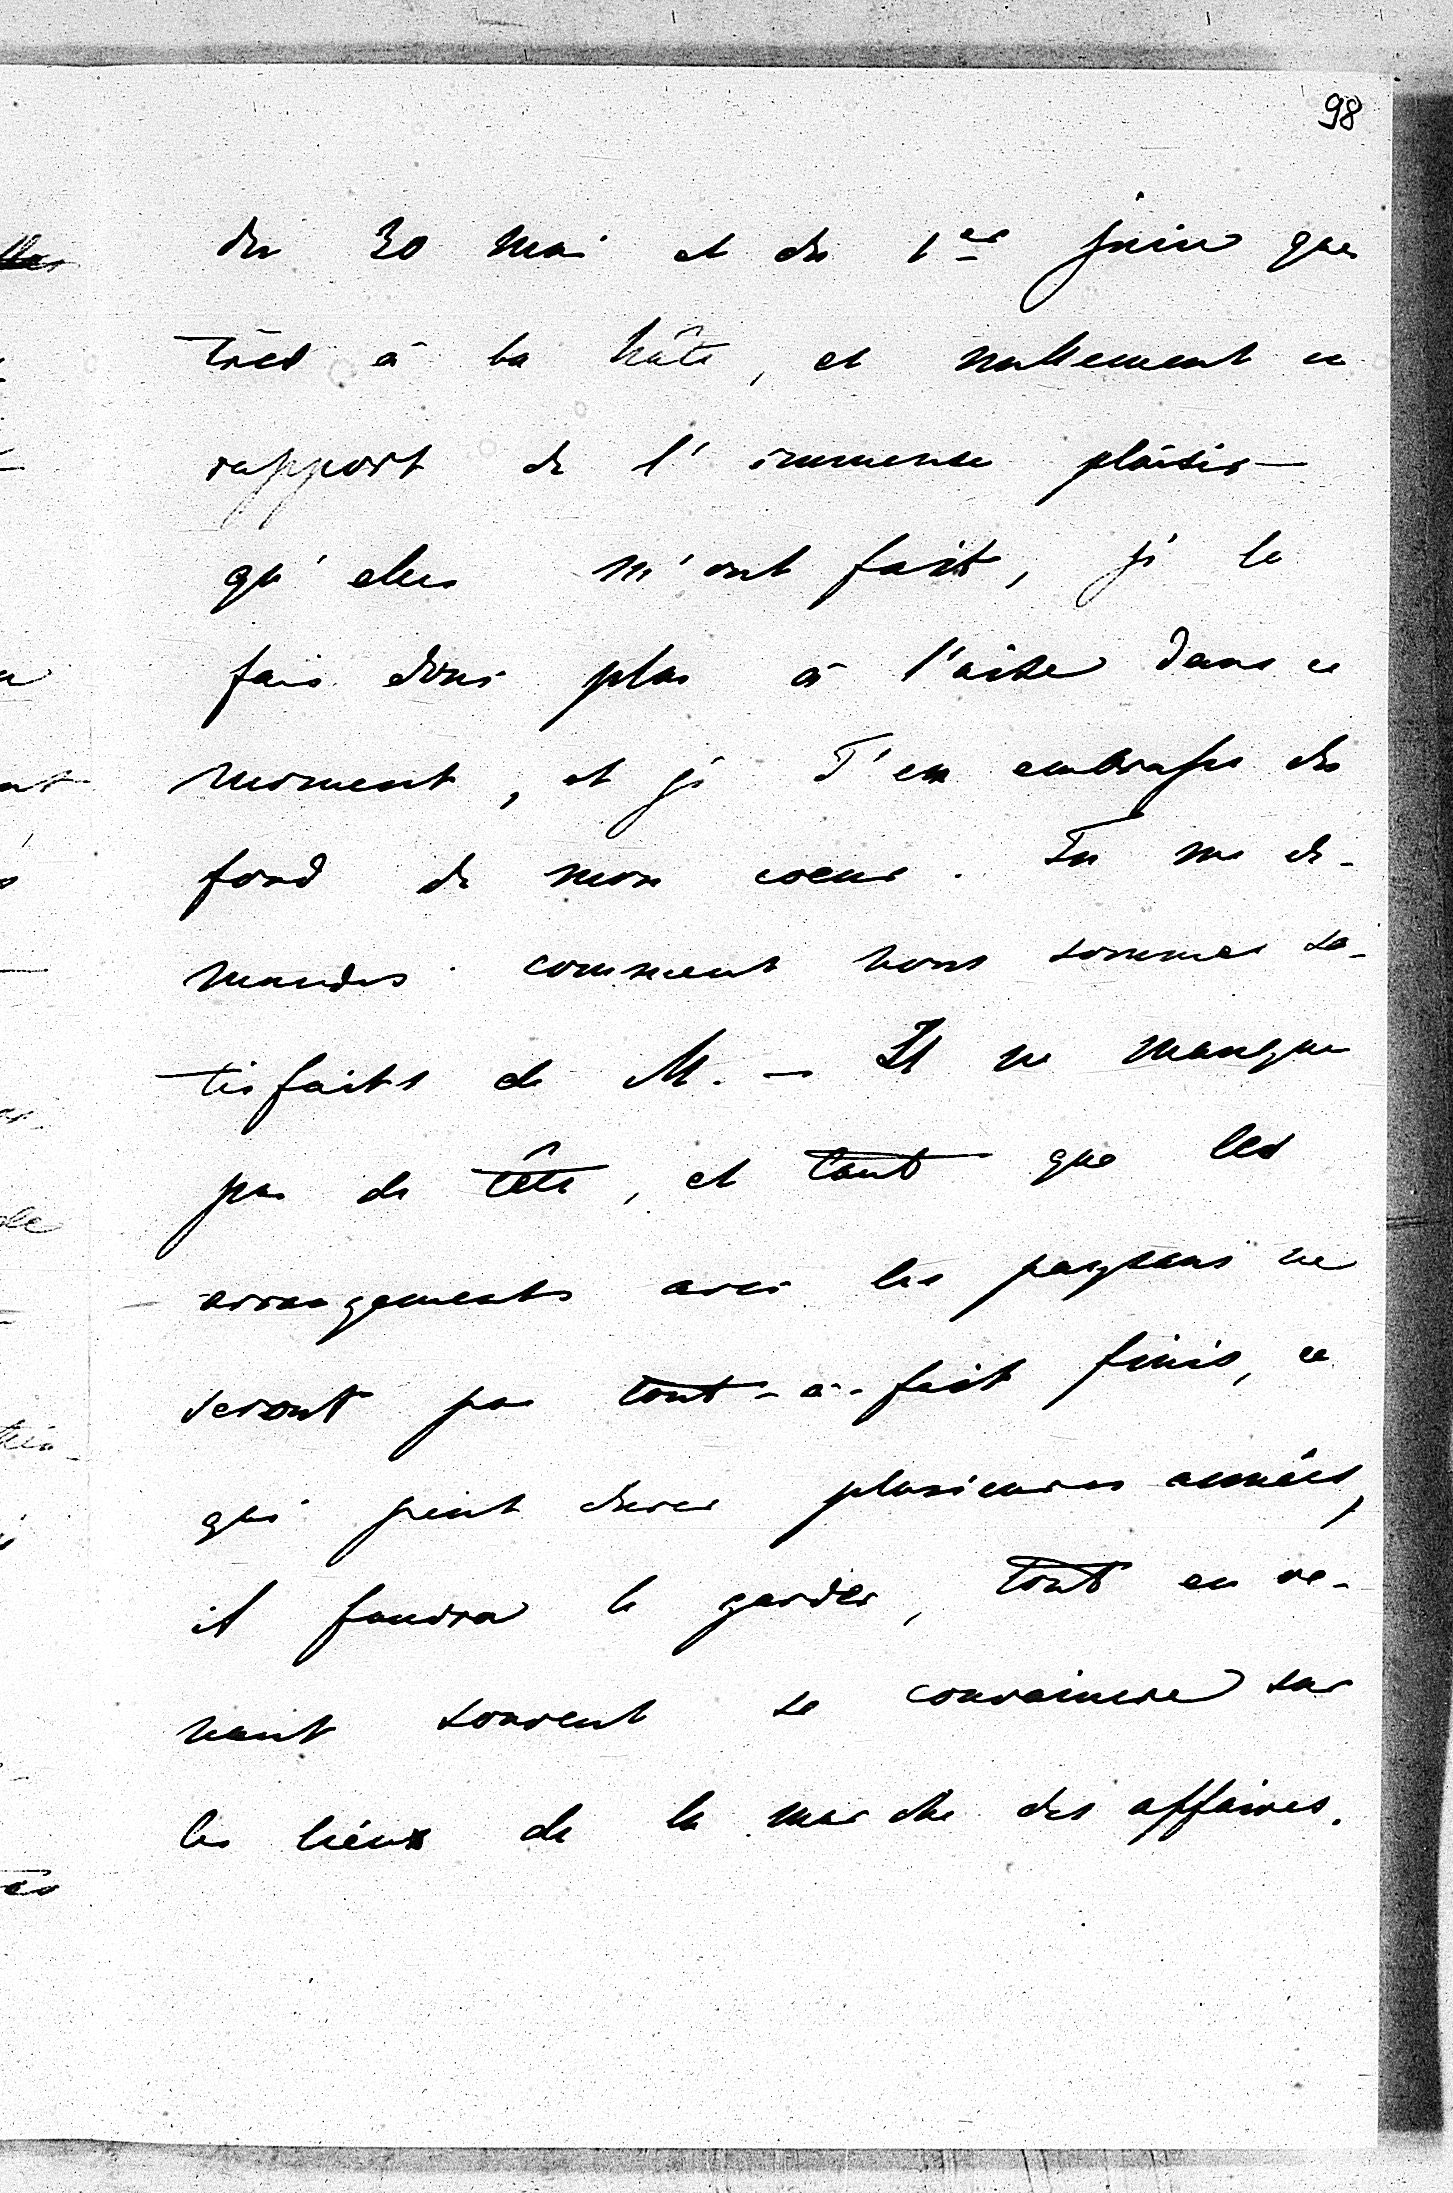 98
du 30 mai et du 1er juin que
très à la hâte, et nullement en
rapport de l'immense plaisir
qu'elles m'ont fait, je le
fais donc plus à l'aise dans ce
moment, et je T'en embrasse du
fond de mon coeur. Tu me de-
mandes comment nous sommes sa-
tisfaits de M. — Il ne manque
pas de tête, et tant que les
arrangements avec les paysans ne
seront pas tout-à-fait finis, ce
qui peut durer plusieures années,
il faudra le garder, tout en ve-
nant souvent se convaincre sur
les lieux de la marche des affaires.